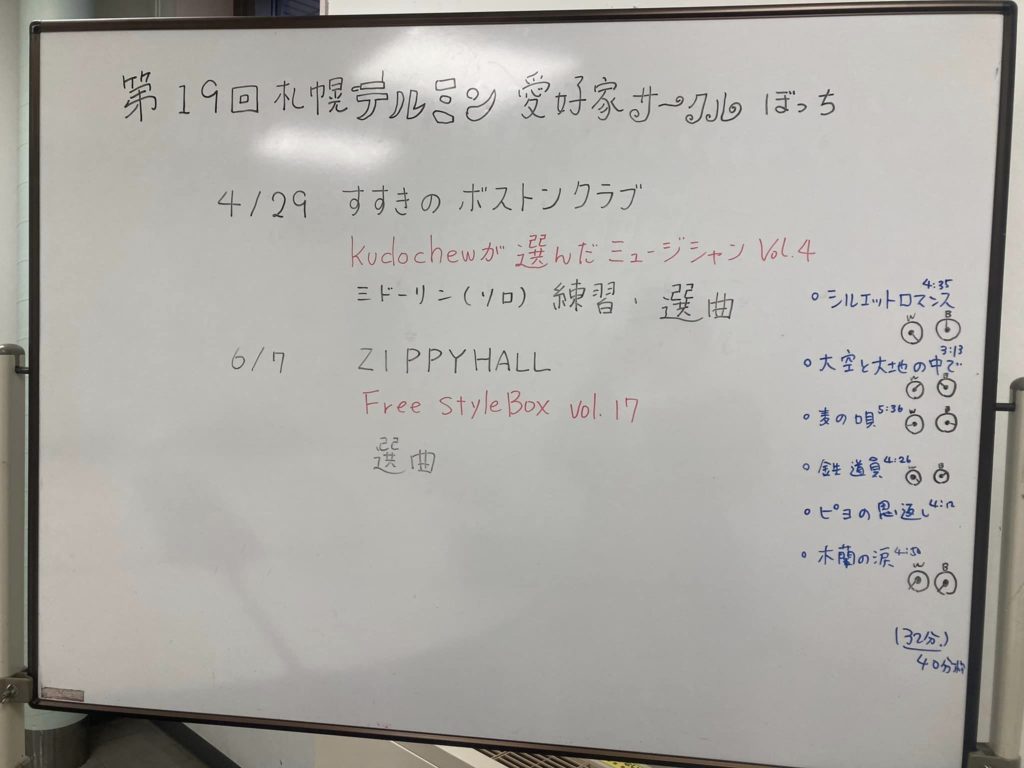 第19回札幌テルミン愛好家サークルぼっち
4/29 すすきの ボストンクラブ
kudochewが選んだミュージシャン Vol.4
ミドーリン(ソロ) 練習・選曲
6/7 ZIPPYHALL
Free StyleBox vol.17
選曲
4:35
○シルエットロマンス
W B
3:13
○大空と大地の中で
○麦の唄 5:36
W B
○鉄道員 4:26
W B
○ピヨの恩返し 4:12
○木蘭の涙 4:50
W B
(32分)
40分枠